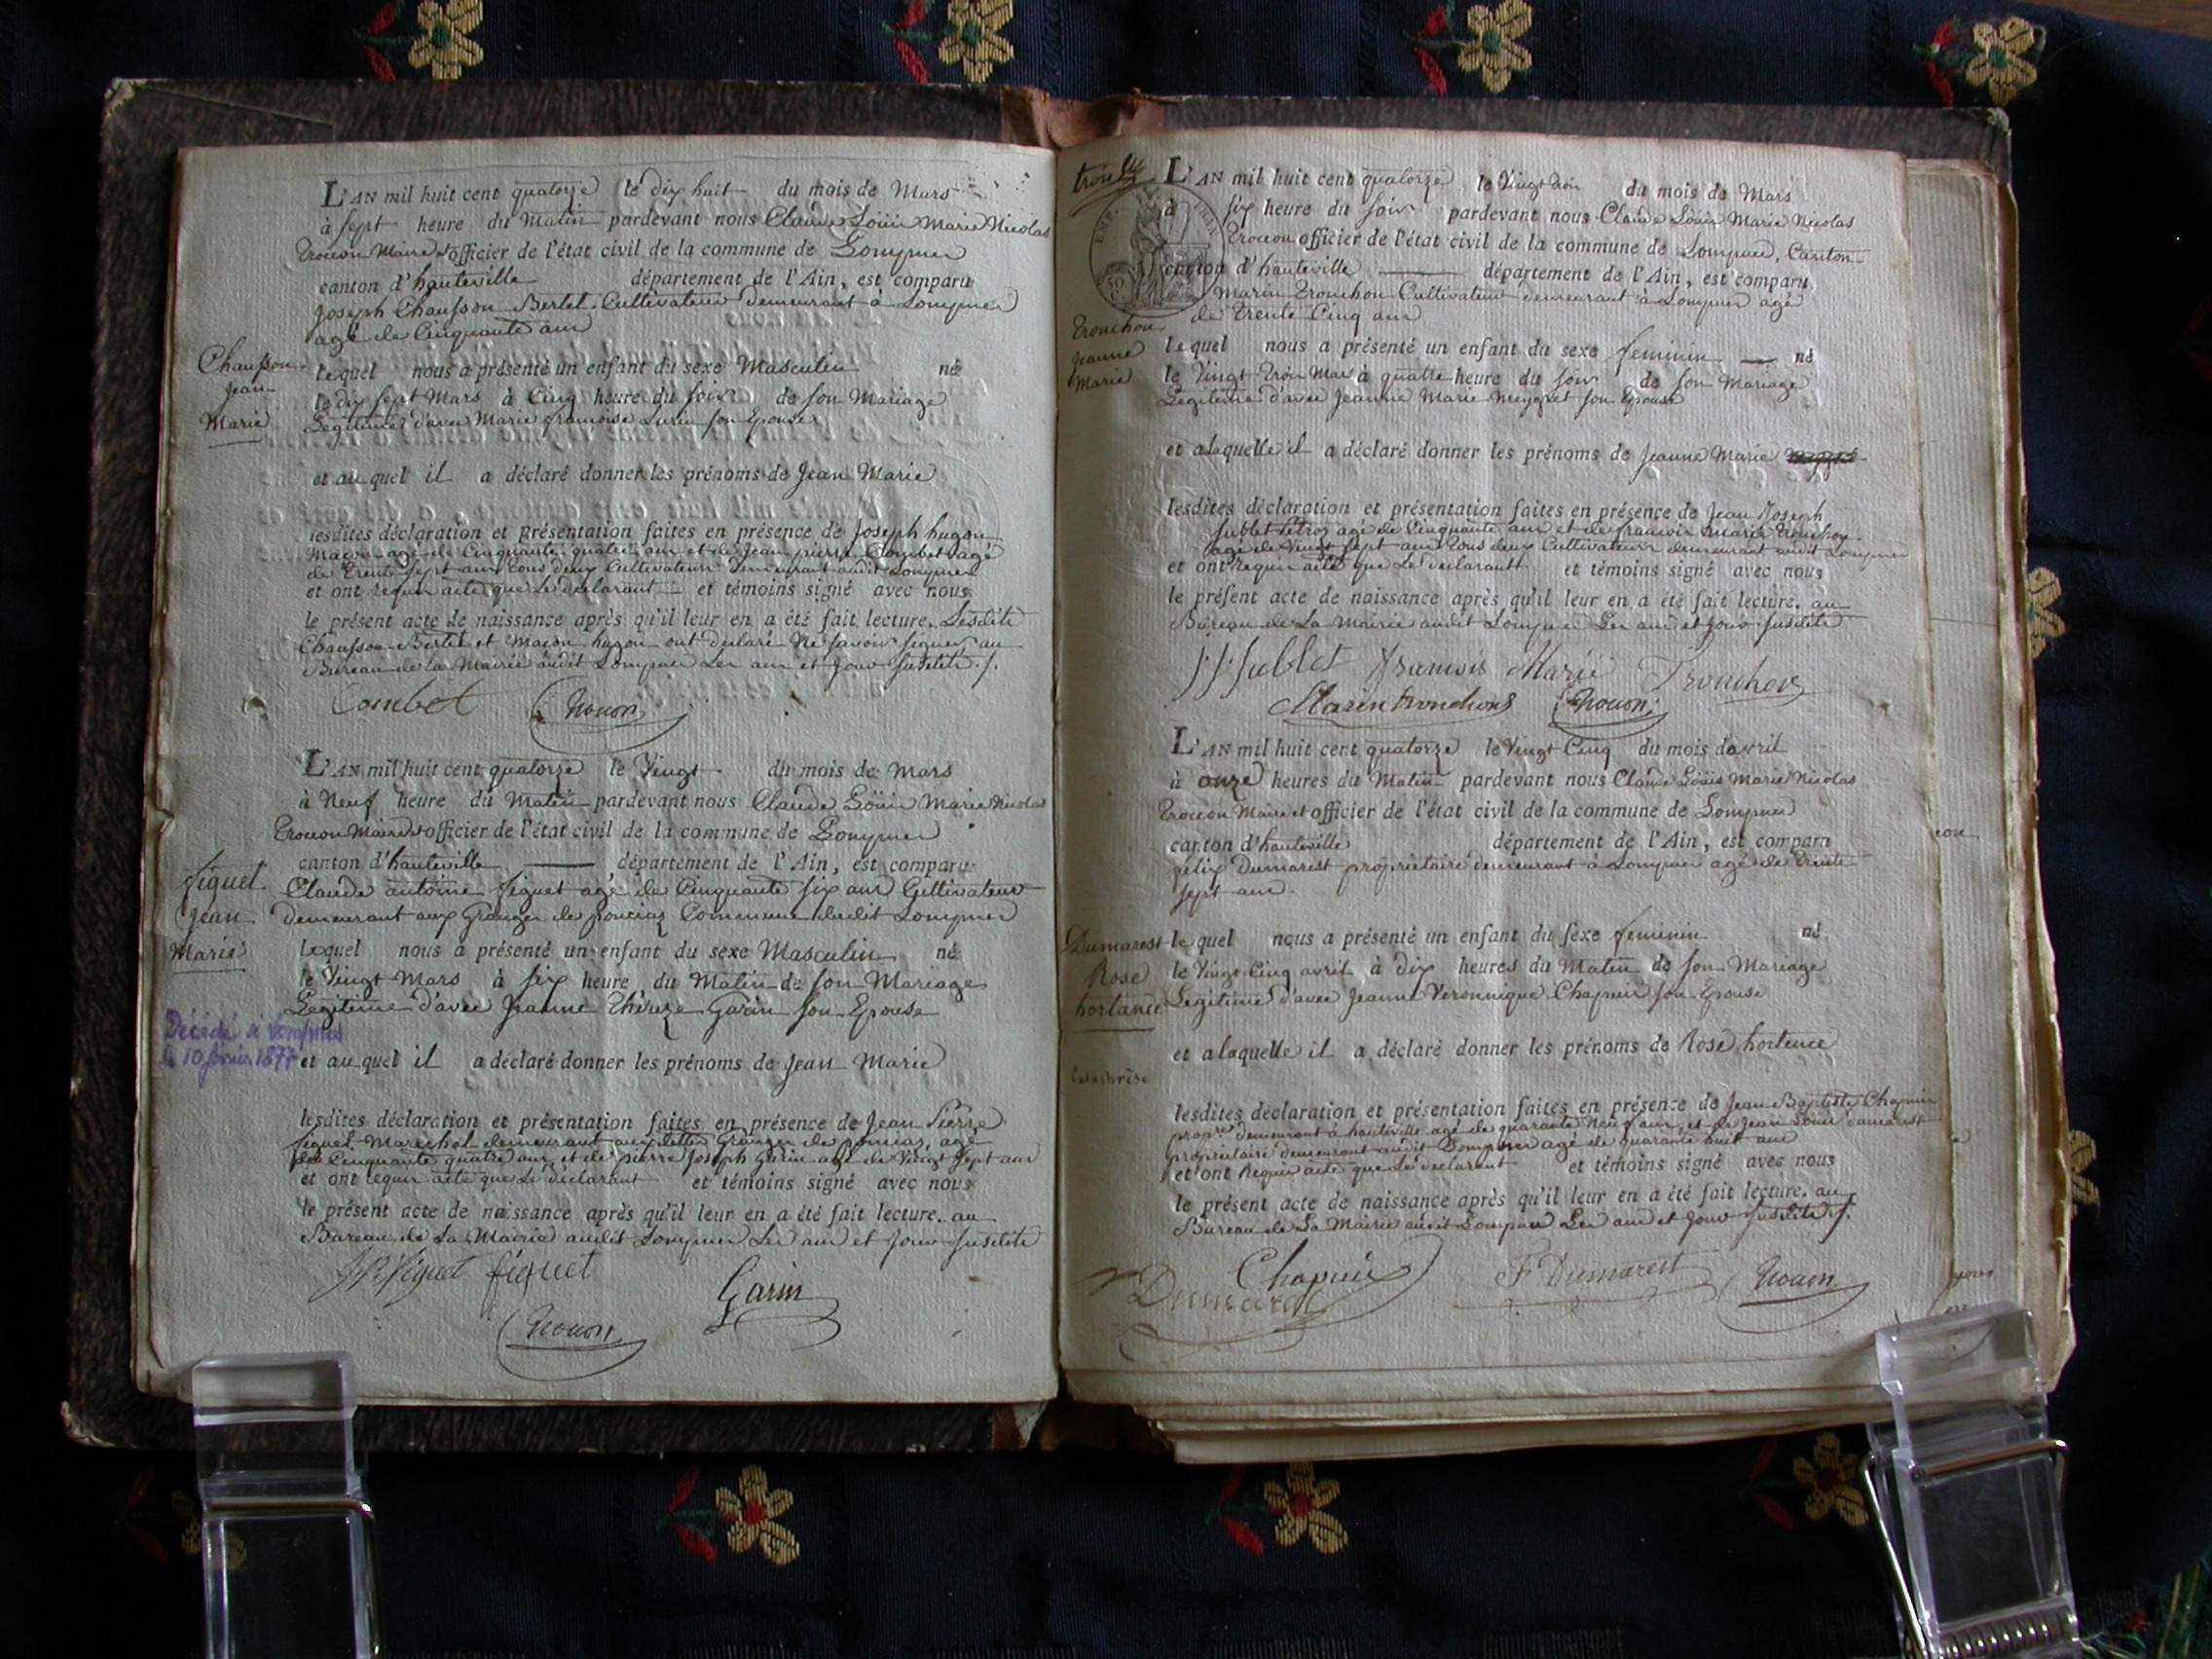 L'AN mil huit cent quatorze le dix huit du mois de Mars
à sept heure du Matin pardevant nous Claude Loüis Marie Nicolas
Trocon Maire et officier de l'état civil de la commune de Lompnes
canton d'hauteville département de l'Ain, est comparu
Joseph Chausson Bertet Cultivateur demeurant à Lompnes
agé de Cinquante ans
Chausson
Jean
Marie
lequel nous a présenté un enfant du sexe Masculin né
le dix sept Mars à Cinq heure du soir de son Mariage
Legitime d'avec Marie francoise son Epouse
et au quel il a déclaré donner les prénoms de Jean Marie
lesdites déclaration et présentation faites en présence de Joseph hugon
Macon agé de Cinquante quatre ans et de Jean pierre Combet agé
de trente sept ans tous deux Cultivateurs demeurant audit Lompnes
et ont requis acte que Le déclarant et témoins signé avec nous
le présent acte de naissance après qu'il leur en a été fait lecture. Lesdits
Chausson Bertet et Macon hugon ont declaré Ne savoir signer au
Bureau de la Mairie audit Lompnes Les ans et Jour susdits ./.
Combet Trocon
L'AN mil huit cent quatorze le Vingt du mois de Mars
à Neuf heure du Matin pardevant nous Claude Loüis Marie Nicolas
Trocon Maire et officier de l'état civil de la commune de Lompnes
canton d'hauteville département de l'Ain, est comparu
Claude antoine figuet agé de Cinquante six ans Cultivateur
demeurant aux Granges de ponciaz Commune dudit Lompnes
figuet
Jean
Marie
lequel nous a présenté un enfant du sexe Masculin né
le Vingt Mars à six heure du Matin de son Mariage
Legitime d'avec Jeanne Thereze Garin son Epouse
Décédé à Lompnes
le 10 février 1877
et au quel il a déclaré donner les prénoms de Jean Marie
lesdites déclaration et présentation faites en présence de Jean Pierre
figuet Marechal demeurant aux dittes Granges de ponciaz, agé
de Cinquante quatre ans, et de pierre Joseph Garin agé de Vingt sept ans
et ont requis acte que Le déclarant et témoins signé avec nous
le présent acte de naissance après qu'il leur en a été fait lecture. au
Bureau de La Mairie audit Lompnes Les ans et Jour susdits
JP figuet figuet
Garin
Trocon
L'AN mil huit cent quatorze le Vingt trois du mois de Mars
à six heure du soir pardevant nous Claude Loüis Marie Nicolas
Trocon officier de l'état civil de la commune de Lompnes, Canton
canton d'hauteville département de l'Ain, est comparu
Marin Tronchon Cultivateur demeurant à Lompnes agé
de trente Cinq ans
Tronchon
Jeanne
Marie
lequel nous a présenté un enfant du sexe feminin né
le Vingt trois Mars à quatre heure du soir de son Mariage
Legitime d'avec Jeanne Marie son Epouse
et a laquelle il a déclaré donner les prénoms de Jeanne Marie
lesdites déclaration et présentation faites en présence de Jean Joseph
Sublet agé de Cinquante ans et de francois Marie Tronchon
agé de Vingt sept ans tous deux Cultivateurs demeurant audit Lompnes
et ont requis acte que Le declarant et témoins signé avec nous
le présent acte de naissance après qu'il leur en a été fait lecture. au
Bureau de La Mairie audit Lompnes Les ans et Jour susdits
JJ Sublet francois Marie Tronchon
Marin tronchon Trocon
L'AN mil huit cent quatorze le Vingt Cinq du mois davril
à onze heures du Matin pardevant nous Claude Loüis Marie Nicolas
Trocon Maire et officier de l'état civil de la commune de Lompnes
canton d'hauteville département de l'Ain, est comparu
félix Dumarest propriétaire demeurant à Lompnes agé de trente
sept ans.
Dumarest
Rose
hortance
le quel nous a présenté un enfant du sexe feminin né
le Vingt Cinq avril à dix heures du Matin de son Mariage
Legitime d'avec Jeanne Veronnique Chapuis son Epouse
et a laquelle il a déclaré donner les prénoms de Rose hortence
lesdites déclaration et présentation faites en présence de Jean Baptiste Chapuis
propre demeurant à hauteville agé de quarante Neuf ans, et de Jean Loüis dumarest
propriétaire demeurant audit Lompnes agé de quarante huit ans
et ont Requis acte que Le declarant et témoins signé avec nous
le présent acte de naissance après qu'il leur en a été fait lecture. au
Bureau de La Mairie audit Lompnes Les ans et Jour susdits ./.
Chapuis F Dumarest Trocon
Dumarest